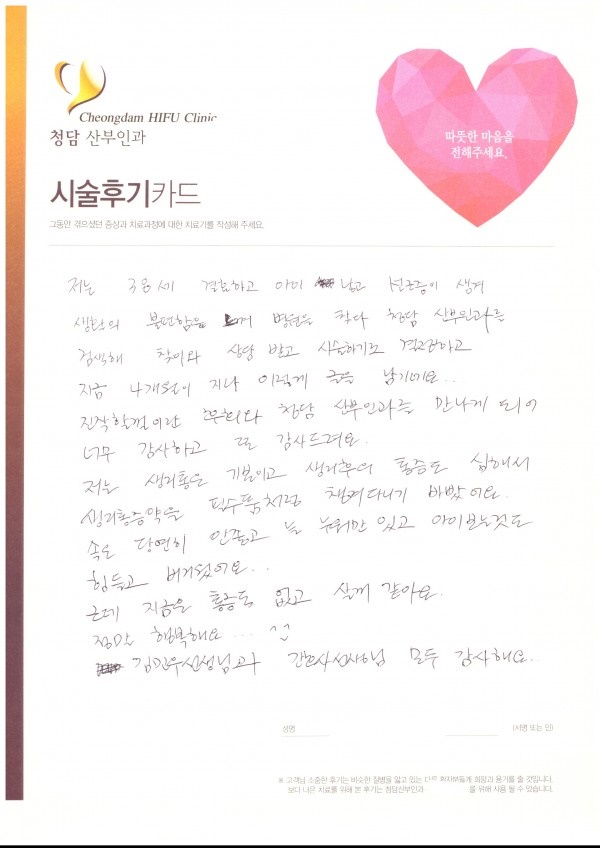 Cheongdam HIFU Clinic
청담 산부인과
따뜻한 마음을
전해주세요.
시술후기카드
그동안 겪으셨던 증상과 치료과정에 대한 치료기를 작성해 주세요.
저는 38세 결혼하고 아이 낳고 선근증이 생겨
생활의 불편함을 느껴 병원을 찾다 청담 산부인과를
검색해 찾아와 상담 받고 시술하기로 결정하고
지금 4개월이 지나 이렇게 글을 남기네요..
진작할걸이란 후회와 청담 산부인과를 만나게 되어
너무 감사하고 또 감사드려요.
저는 생리통은 기본이고 생리후의 통증도 심해서
생리통증약을 필수품처럼 챙겨다니기 바빴어요.
속은 당연히 안좋고 늘 누워만 있고 아이보는것도
힘들고 버거웠어요..
근데 지금은 통증도 없고 살거 같아요.
정말 행복해요... ^^
김민우선생님과 간호사선생님 모두 감사해요.
성명
(서명 또는 인)
※ 고객님 소중한 후기는 비슷한 질병을 앓고 있는 다른 환자분들께 희망과 용기를 줄 것입니다.
보다 나은 치료를 위해 본 후기는 청담산부인과 를 위해 사용 될 수 있습니다.